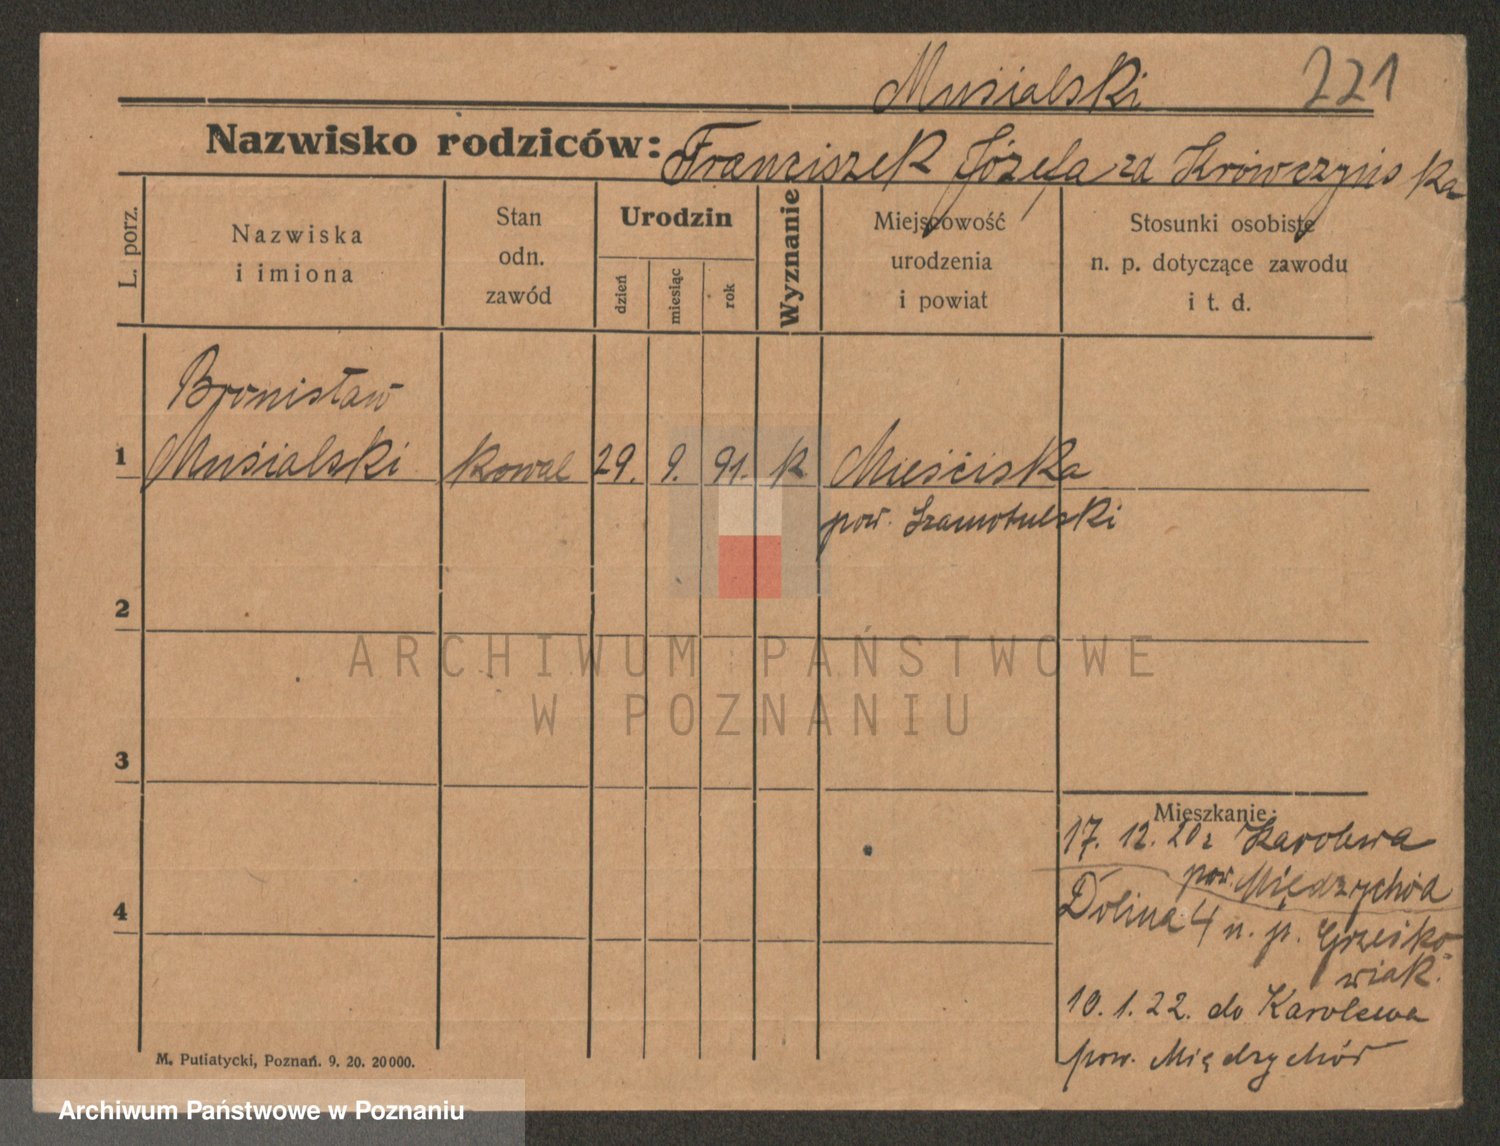 Musialski 221
Nazwisko rodziców: Franciszek Józefa zd Krówczyńska
L. porz.
Nazwiska
i imiona
Stan
odn.
zawód
Urodzin
dzień
miesiąc
rok
Wyznanie
Miejscowość
urodzenia
i powiat
Stosunki osobiste
n. p. dotyczące zawodu
i t. d.
Bronisław
1 Musialski kowal 29. 9. 91. k Mieściska
pow. Szamotulski
2
ARCHIWUM PAŃSTWOWE
W POZNANIU
3
Mieszkanie:
17. 12. 20 z Karolewa
pow. Międzychód
4
Dolina 4 n. p. Grześko-
wiak.
10. 1. 22. do Karolewa
pow. Międzychód
M. Putiatycki, Poznań. 9. 20. 20000.
Archiwum Państwowe w Poznaniu